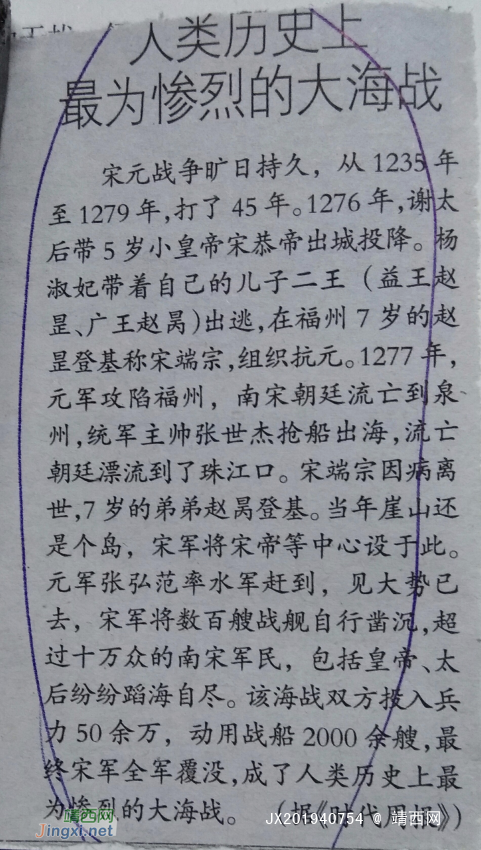 人类历史上
最为惨烈的大海战
宋元战争旷日持久，从1235年
至1279年，打了45年。1276年，谢太
后带5岁小皇帝宋恭帝出城投降。杨
淑妃带着自己的儿子二王（益王赵
昰、广王赵昺）出逃，在福州7岁的赵
昰登基称宋端宗，组织抗元。1277年，
元军攻陷福州，南宋朝廷流亡到泉
州，统军主帅张世杰抢船出海，流亡
朝廷漂流到了珠江口。宋端宗因病离
世，7岁的弟弟赵昺登基。当年崖山还
是个岛，宋军将宋帝等中心设于此。
元军张弘范率水军赶到，见大势已
去，宋军将数百艘战舰自行凿沉，超
过十万众的南宋军民，包括皇帝、太
后纷纷蹈海自尽。该海战双方投入兵
力50余万，动用战船2000余艘，最
终宋军全军覆没，成了人类历史上最
为惨烈的大海战。（据《时代周报》）
靖西网
Jingxi.net
JX201940754 @ 靖西网